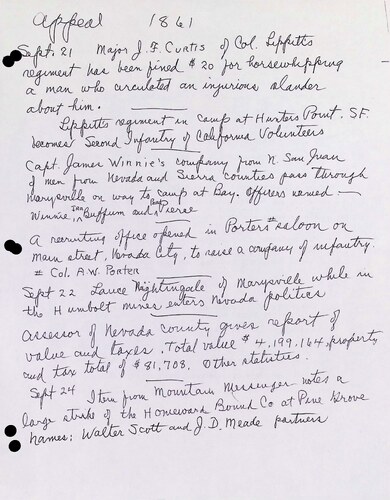 Appeal 1861
Sept. 21 Major J. F. Curtis of Col. Lippitts
regiment has been fined $20 for horsewhipping
a man who circulated an injurious slander
about him.
Lippitts regiment in camp at Hunters Point. S.F.
becomes Second Infantry of California Volunteers
Capt. James Winnie's company from N San Juan
of men from Nevada and Sierra counties pass through
Marysville on way to camp at Bay. Officers named —
Winnie, Buffum and Pierse
A recruiting office opened in Porters # saloon on
main street, Nevada City, to raise a company of infantry.
# Col. A.W. Porter
Sept 22 Lance Nightingale of Marysville while in
the Humbolt mines enters Nevada politics
Assessor of Nevada County gives report of
value and taxes. Total value $4,199,164, property
and tax total of $81,708. Other statistics.
Sept 24 Item from Mountain Messenger notes a
large strike of the Homeward Bound Co at Pine Grove
names: Walter Scott and J.D. Meade partners